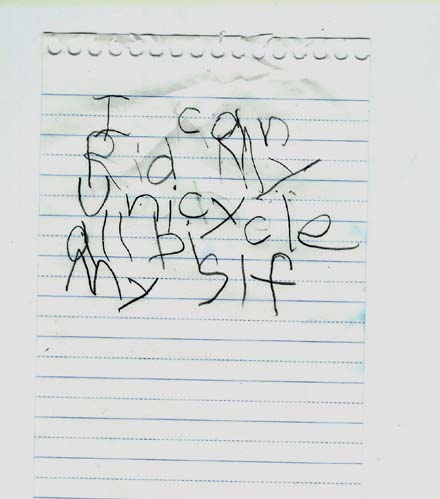 I can
Rid My
Unicycle
all bi
My Slf